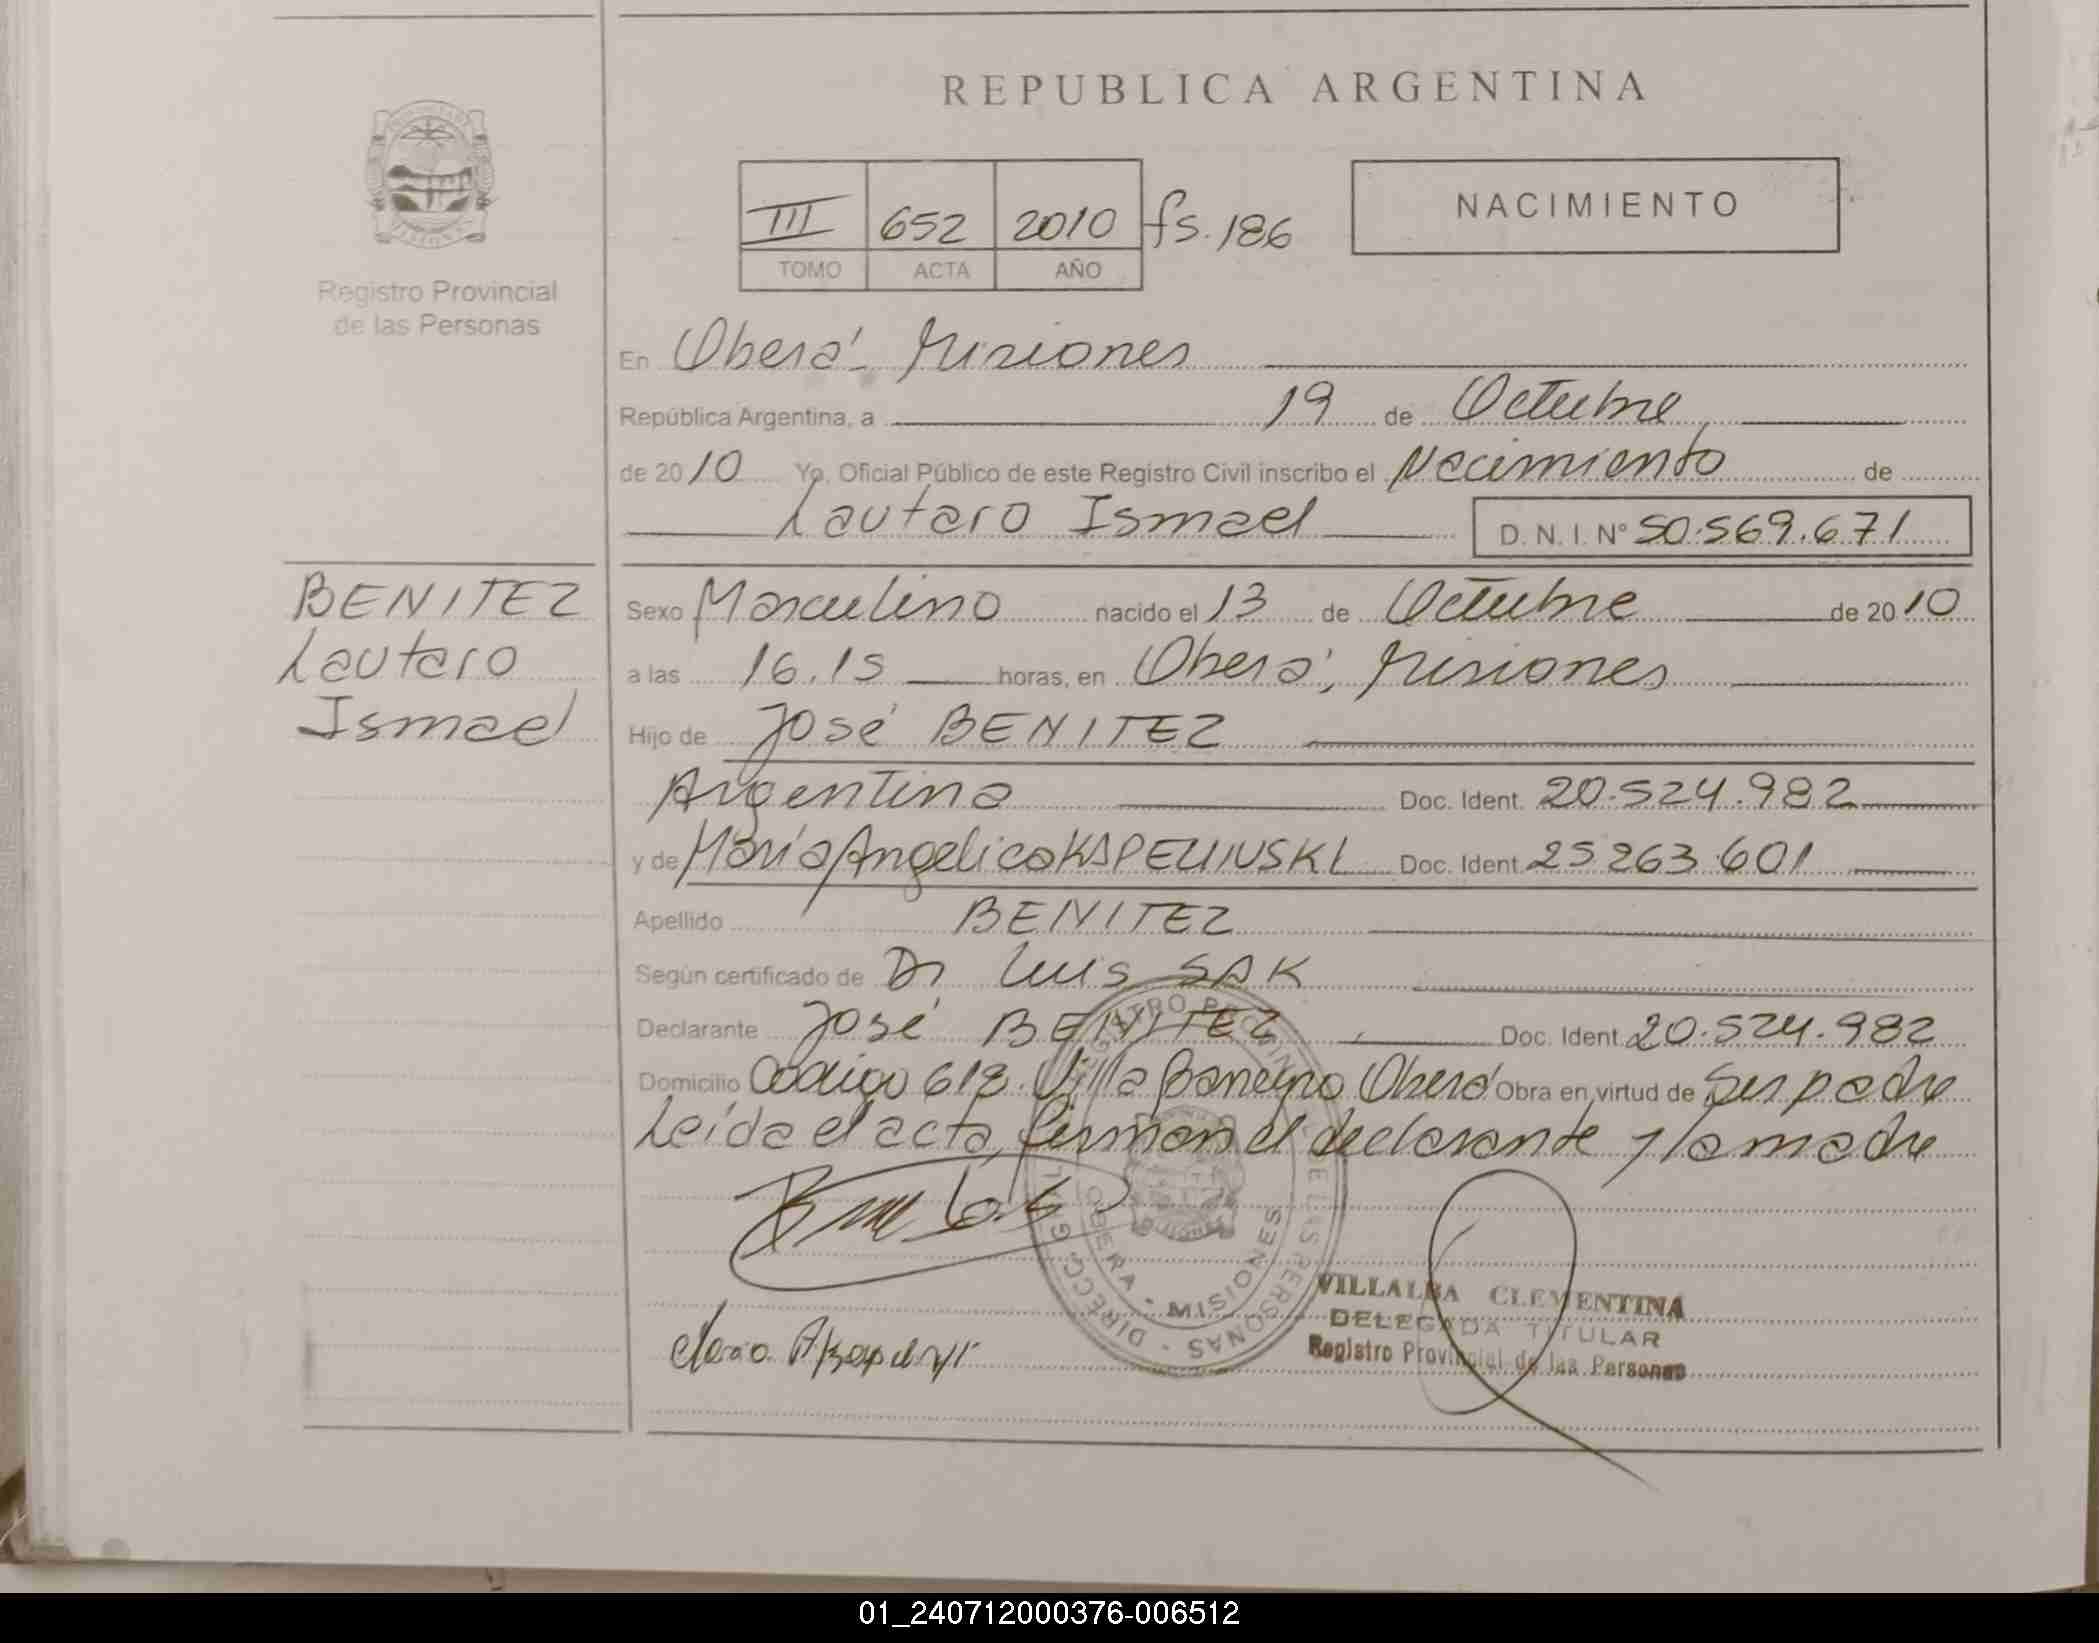 REPUBLICA ARGENTINA
III 652 2010 fs. 186
TOMO ACTA AÑO
NACIMIENTO
Registro Provincial
de las Personas
En Oberá - Misiones
República Argentina, a 19 de Octubre
de 2010 Yo, Oficial Público de este Registro Civil inscribo el Nacimiento de
Lautaro Ismael D. N. I. Nº 50.569.671
BENITEZ
Lautaro
Ismael
Sexo Masculino nacido el 13 de Octubre de 2010
a las 16.15 horas, en Oberá, Misiones
Hijo de José BENITEZ
Argentina Doc. Ident. 20.524.982
y de María Angelica Doc. Ident. 25 263.601
Apellido BENITEZ
Según certificado de Dr Luis SAK
Declarante José BENITEZ Doc. Ident. 20.524.982
Domicilio Codigo 618. Villa Oberá Obra en virtud de Ser padre
Leída el acta, firman el declarante y la madre
REGISTRO PROVINCIAL DE LAS PERSONAS - DIRECC. G
OBERA - MISIONES
VILLALBA CLEMENTINA
DELEGADA TITULAR
Registro Provincial de las Personas
01_240712000376-006512